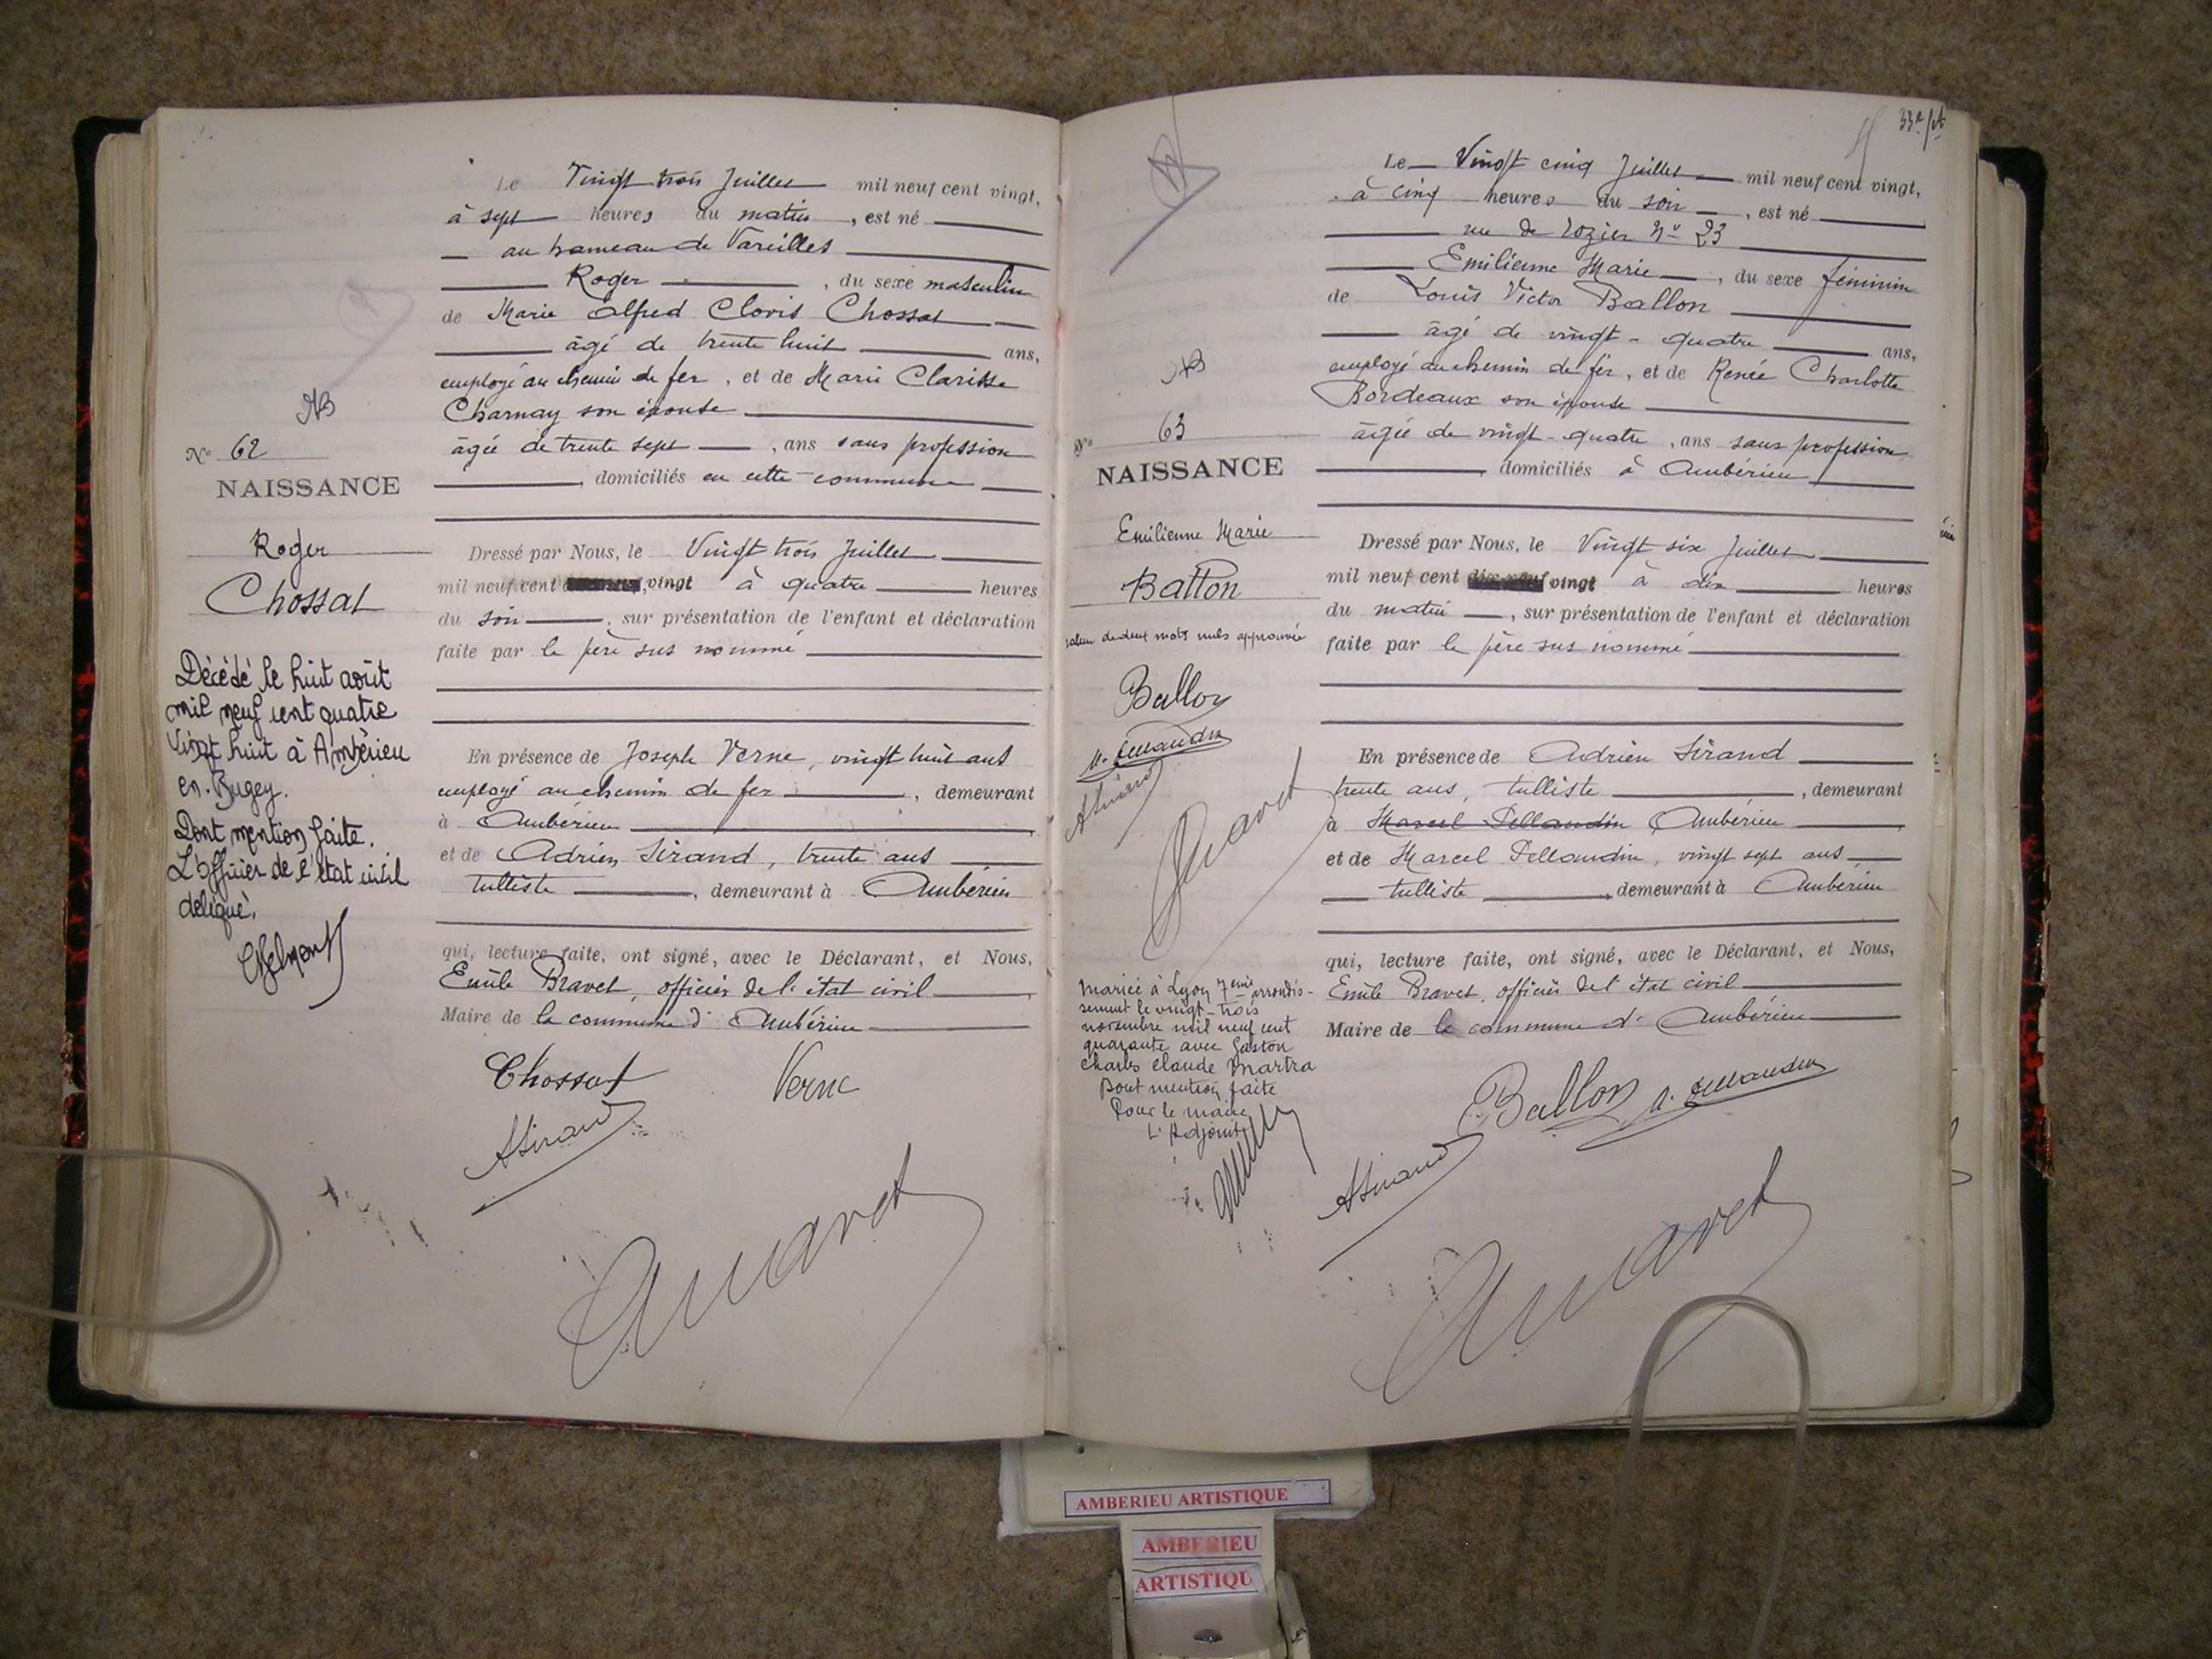 Le Vingt trois Juillet mil neuf cent vingt,
à sept heures du matin, est né
au hameau de Vareilles
Roger, du sexe masculin
de Marie Alfred Clovis Chossat
âgé de trente huit ans,
employé au chemin de fer, et de Marie Clarisse
Charnay son épouse
âgée de trente sept, ans sans profession
domiciliés en cette commune
Dressé par Nous, le Vingt trois Juillet
mil neuf cent vingt à quatre heures
du soir, sur présentation de l'enfant et déclaration
faite par le père sus nommé
En présence de Joseph Verne, vingt huit ans
employé au chemin de fer, demeurant
à Ambérieu
et de Adrien Sirand, trente ans
tulliste, demeurant à Ambérieu
qui, lecture faite, ont signé, avec le Déclarant, et Nous,
Emile Bravet, officier de l'état civil
Maire de la commune d'Ambérieu
Chossat Verne
ASirand
N° 62
NAISSANCE
Roger
Chossat
Décédé le huit août
mil neuf cent quatre
vingt huit à Ambérieu
en Bugey.
Dont mention faite.
L'officier de l'état civil
délégué.
33e f.t
Le Vingt cinq Juillet mil neuf cent vingt,
à cinq heures du soir, est né
rue de Rozier N° 23
Emilienne Marie, du sexe féminin
de Louis Victor Ballon
âgé de vingt-quatre ans,
employé au chemin de fer, et de Renée Charlotte
Bordeaux son épouse
âgée de vingt-quatre, ans sans profession
domiciliés à Ambérieu
Dressé par Nous, le Vingt six Juillet
mil neuf cent dix-neuf vingt à dix heures
du matin, sur présentation de l'enfant et déclaration
faite par le père sus nommé
En présence de Adrien Sirand
trente ans, tulliste, demeurant
à Marcel Pellaudin Ambérieu
et de Marcel Pellaudin, vingt sept ans
tulliste, demeurant à Ambérieu
qui, lecture faite, ont signé, avec le Déclarant, et Nous,
Emile Bravet, officier de l'état civil
Maire de la commune d'Ambérieu
Ballon
ASirand
N° 63
NAISSANCE
Emilienne Marie
Ballon
de deux mots nuls approuvée
Ballon
ASirand
Mariée à Lyon 7eme arrondis-
sement le vingt-trois
novembre mil neuf cent
quarante avec Gaston
Charles Claude Martra
Dont mention faite
Pour le maire
L'Adjoint
AMBERIEU ARTISTIQUE
AMBERIEU
ARTISTIQU